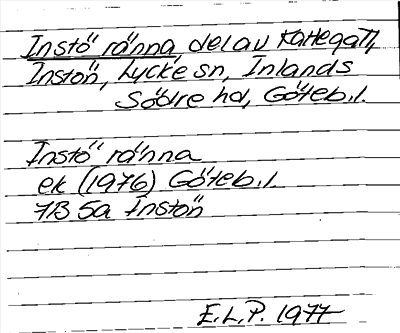 Instö ränna, del av Kattegatt,
Instön, Lycke sn, Inlands
Södre hd, Göteb.l.
Instö ränna
ek (1976) Göteb.l.
7B 5a Instön
E.L.P. 1977